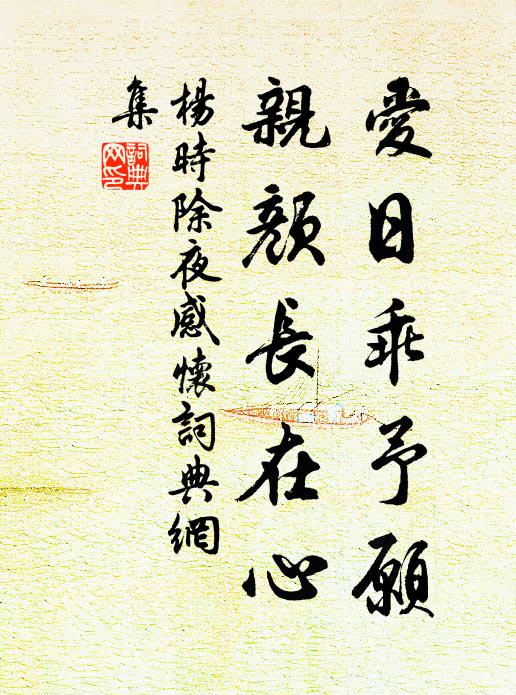 愛日乖予願
親顏長在心
楊時除夜感懷詞典網
集
詞典
網印